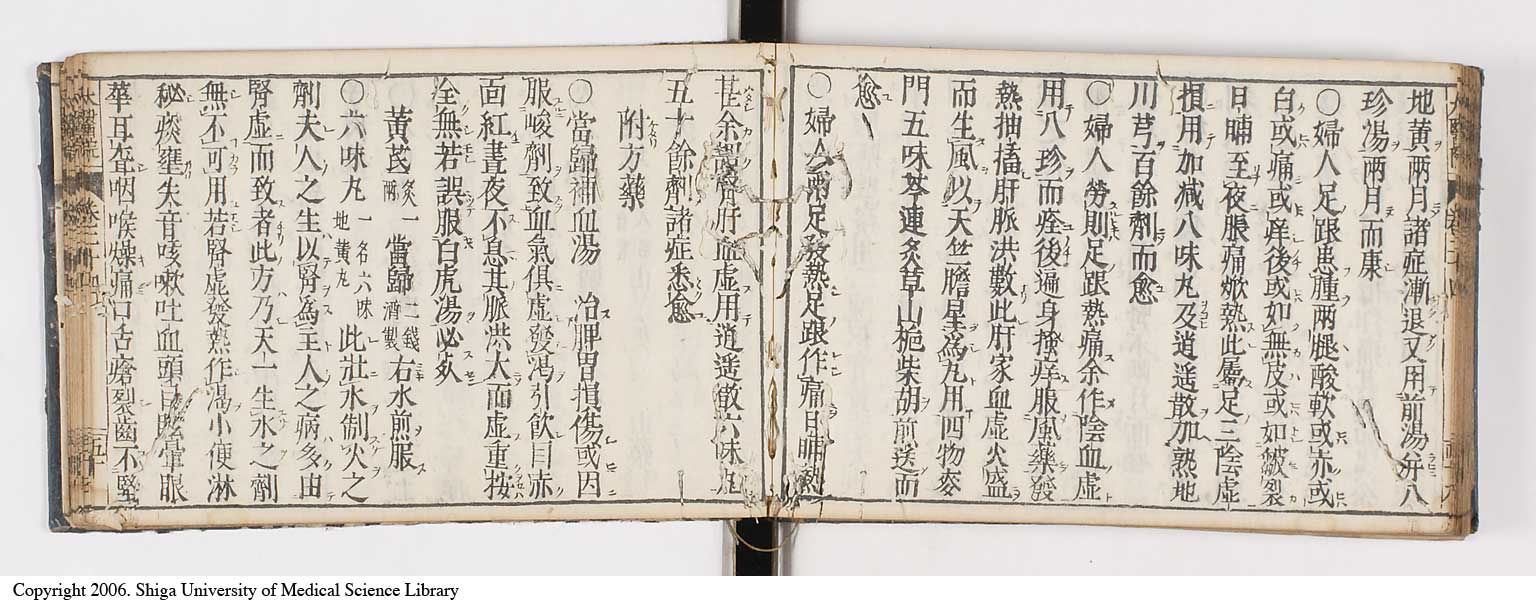 地黄兩月諸症漸退又用前湯并八
珍湯兩月而康
○婦人足跟患腫兩腿酸軟或赤或
白或痛或痒後或如無皮或如皴裂
日晡至夜脹痛焮熱此屬足三陰虛
損用加減八味丸及逍遥散加熟地
川芎百餘劑而愈
○婦人勞則足跟熱痛余作陰血虛
用八珍而痊後遍身搔痒服風藥發
熱抽搐肝脈洪數此肝家血虛火盛
而生風以天竺膽星為丸用四物麥
門五味芩連炙草山栀柴胡煎送而
愈
○婦人兩足發熱足跟作痛日晡熱
甚余謂腎肝血虛用逍遥散六味丸
五十餘劑諸症悉愈
附方藥
○當歸補血湯 治脾胃損傷或因
服峻劑致血氣俱虛發渴引飲目赤
面紅晝夜不息其脈洪大而虛重按
全無若誤服白虎湯必死
黃芪炙一兩 當歸二錢酒製 右水煎服
○六味丸一名六味地黄丸 此壮水制火之
劑夫人之生以腎為主人之病多由
腎虛而致者此方乃天一生水之劑
無不可用若腎虛發熱作渴小便淋
秘痰壅失音咳嗽吐血頭目眩暈眼
華耳聾咽喉燥痛口舌瘡裂齒不堅
五十
Copyright 2006. Shiga University of Medical Science Library